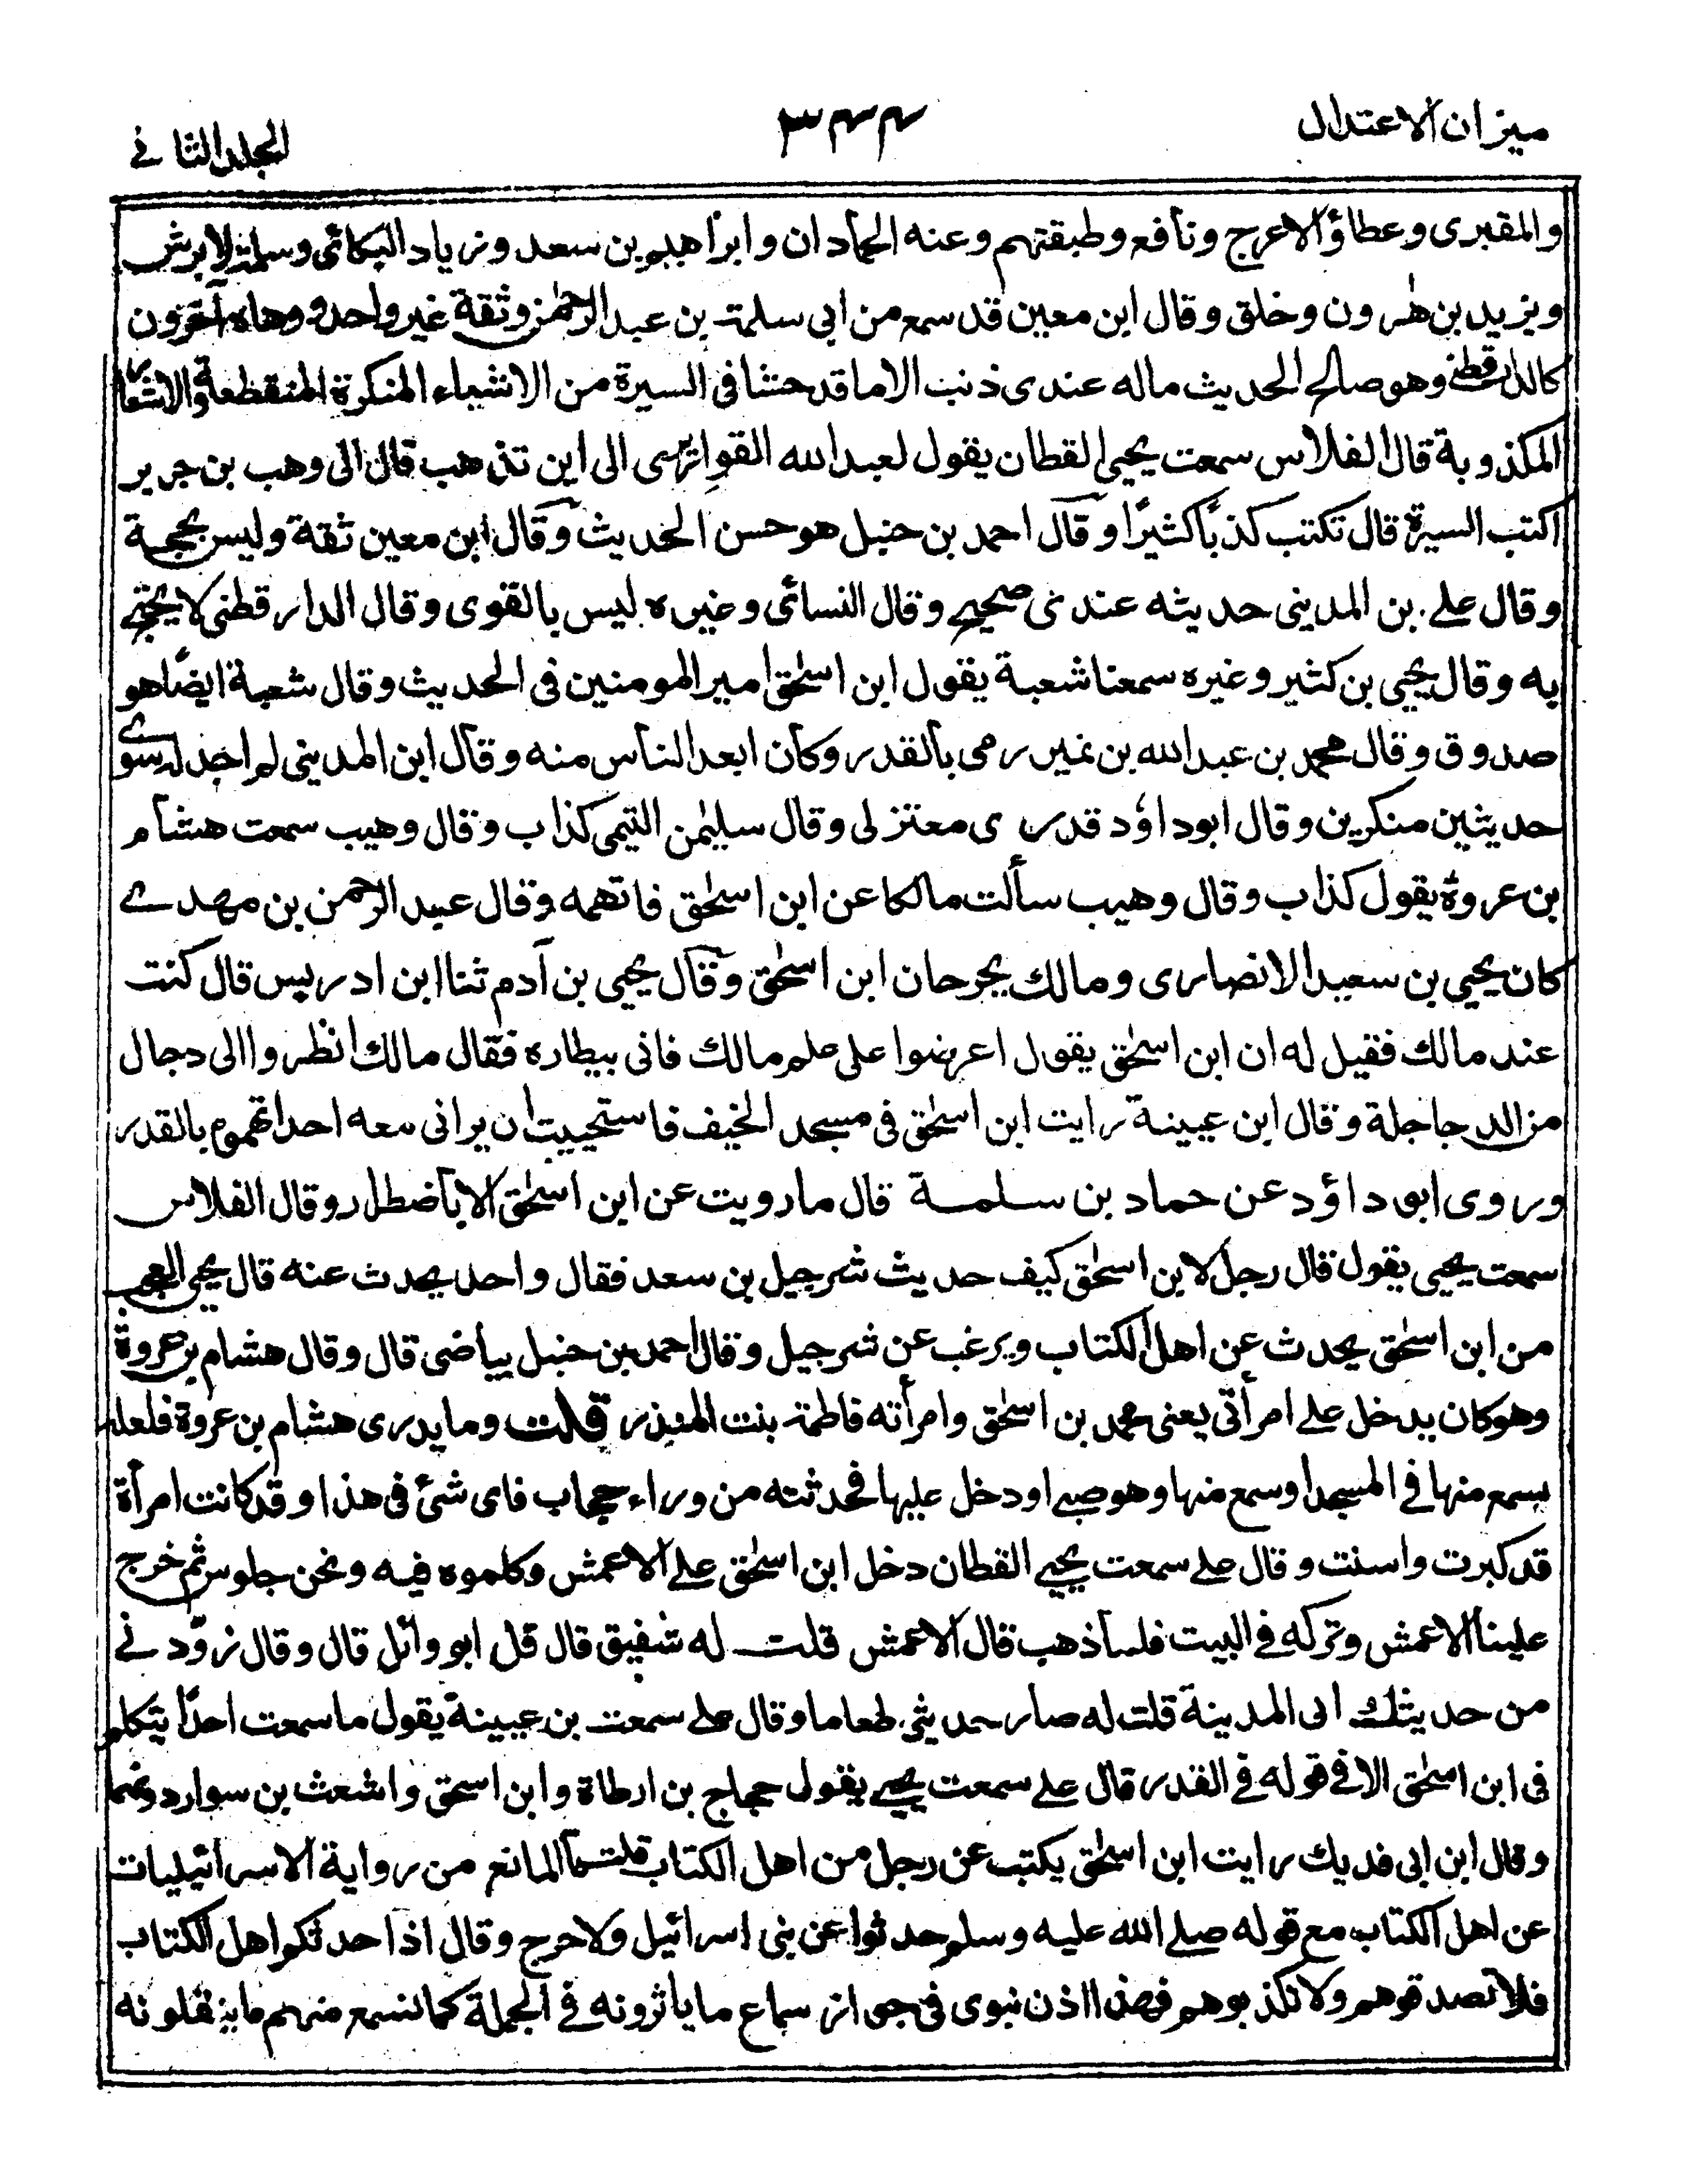 ميزان الاعتدال
٣٤٤
المجلد الثاني
والمقبرى وعطاؤ الاعرج ونافع وطبقتهم وعنه الحمادان وابراهيم بن سعد وزياد البكائى وسلمة الابرش
ويزيد بن هٰرون وخلق وقال ابن معين قد سمع من ابى سلمة بن عبد الرحمٰن وثقة غير واحد ووهاه آخرون
كالدارقطنى وهو صالح الحديث ماله عندى ذنب الا ما قد حشا فى السيرة من الاشياء المنكرة المنقطعة والاشعار
المكذوبة قال الفلاس سمعت يحيى القطان يقول لعبد الله القواريرى الى اين تذهب قال الى وهب بن جرير
اكتب السيرة قال تكتب كذبًا كثيرًا وقال احمد بن حنبل هو حسن الحديث وقال ابن معين ثقة وليس بحجة
وقال على بن المدينى حديثه عندى صحيح وقال النسائى وغيره ليس بالقوى وقال الدارقطنى لا يحتج
به وقال يحيى بن كثير وغيره سمعنا شعبة يقول ابن اسحٰق امير المومنين فى الحديث وقال شعبة ايضًا هو
صدوق وقال محمد بن عبد الله بن نمير رمى بالقدر وكان ابعد الناس منه وقال ابن المدينى لم اجد له سوے
حديثين منكرين وقال ابو داؤد قدرى معتزلى وقال سليمٰن التيمى كذاب وقال وهيب سمعت هشام
بن عروة يقول كذاب وقال وهيب سألت مالكا عن ابن اسحٰق فاتهمه وقال عبد الرحمن بن مهدے
كان يحيى بن سعيد الانصارى ومالك يجرحان ابن اسحٰق وقال يحيى بن آدم ثنا ابن ادريس قال كنت
عند مالك فقيل له ان ابن اسحٰق يقول اعرضوا على علم مالك فانى بيطاره فقال مالك انظروا الى دجال
من الدجاجلة وقال ابن عيينة رايت ابن اسحٰق فى مسجد الخيف فاستحييت ان يرانى معه احد اتهموه بالقدر
وروى ابو داؤد عن حماد بن سلمة قال ما رويت عن ابن اسحٰق الا باضطرار وقال الفلاس
سمعت يحيى يقول قال رجل لابن اسحٰق كيف حديث شرحبيل بن سعد فقال واحد يحدث عنه قال يحيى العجب
من ابن اسحٰق يحدث عن اهل الكتاب ويرغب عن شرحبيل وقال احمد بن حنبل بياضى قال وقال هشام بن عروة
وهو كان يدخل على امرأتى يعنى محمد بن اسحٰق وامرأته فاطمة بنت المنذر قلت وما يدرى هشام بن عروة فلعله
سمع منها فى المسجد او سمع منها وهو صبى او دخل عليها فحدثته من وراء حجاب فاى شئ فى هذا وقد كانت امرأة
قد كبرت واسنت وقال على سمعت يحيى القطان دخل ابن اسحٰق على الاعمش وكلموه فيه ونحن جلوس ثم خرج
علينا الاعمش وتركه فى البيت فلما ذهب قال الاعمش قلت له شفيق قال قل ابو وائل قال وقال زوّدنى
من حديثك الى المدينة قلت له صار حديثى طعاما وقال على سمعت بن عيينة يقول ما سمعت احدًا يتكلم
فى ابن اسحٰق الا فى قوله فى القدر قال على سمعت يحيى يقول حجاج بن ارطاة وابن اسحق واشعث بن سوار دونهما
وقال ابن ابى فديك رايت ابن اسحٰق يكتب عن رجل من اهل الكتاب قلت ما المانع من رواية الاسرائيليات
عن اهل الكتاب مع قوله صلى الله عليه وسلم حدثوا عن بنى اسرائيل ولا حرج وقال اذا حدثكم اهل الكتاب
فلا تصدقوهم ولا تكذبوهم فهذا اذن نبوى فى جواز سماع ما يأثرونه فى الجملة كما نسمع منهم ما ينقلونه